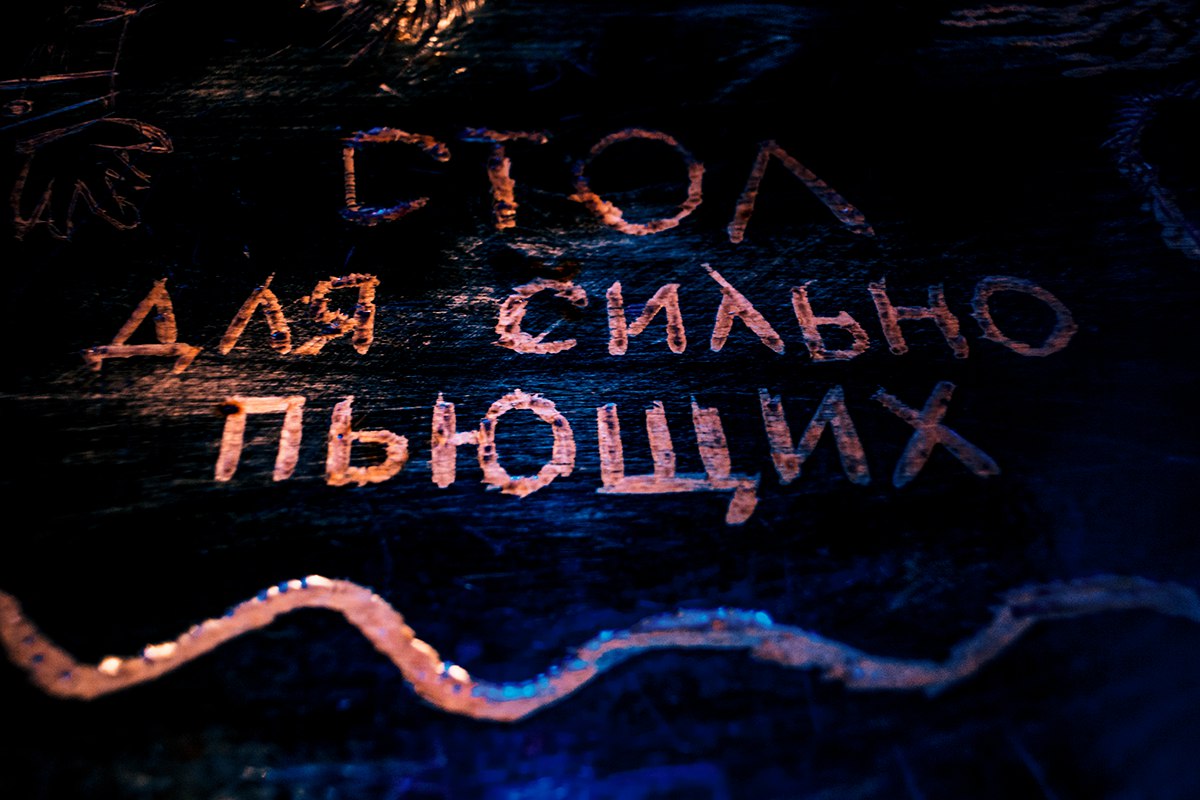 СТОЛ
ДЛЯ СИЛЬНО
ПЬЮЩИХ